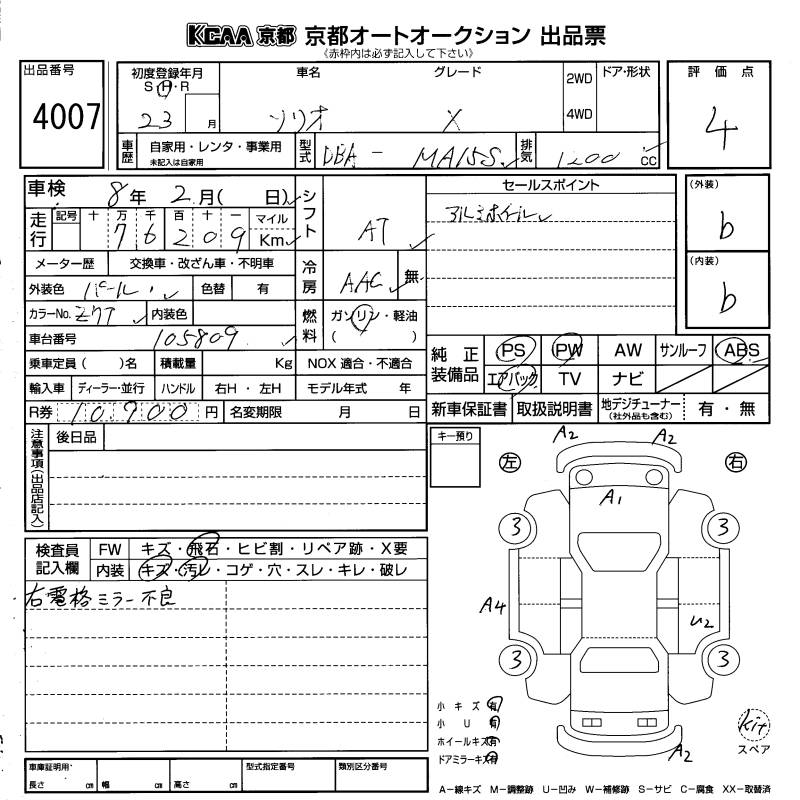 KCAA 京都 京都オートオークション 出品票
《赤枠内は必ず記入して下さい》
出品番号
4007
初度登録年月
S・H・R
23 月
車名
ソリオ
グレード
X
2WD
4WD
ドア・形状
評価点
4
車歴
自家用・レンタ・事業用
未記入は自家用
型式
DBA - MA15S
排気
1200 cc
車検 8年 2月( 日)
走行
記号 十 万 千 百 十 一
76209
マイル
Km
シフト
AT
メーター歴 交換車・改ざん車・不明車
冷房
AAC
無
外装色 パール
色替 有
カラーNo. Z7T
内装色
燃料
ガソリン・軽油
( )
車台番号 105809
乗車定員( )名 積載量 Kg NOX 適合・不適合
輸入車 ディーラー・並行 ハンドル 右H・左H モデル年式 年
R券 10,900 円 名変期限 月 日
セールスポイント
アルミホイール
(外装)
b
(内装)
b
純正装備品
PS PW AW サンルーフ ABS
エアバック TV ナビ
新車保証書 取扱説明書 地デジチューナー(社外品も含む) 有・無
注意事項(出品店記入)
後日品
キー預り
検査員記入欄
FW キズ・飛石・ヒビ割・リペア跡・X要
内装 キズ・汚レ・コゲ・穴・スレ・キレ・破レ
右電格ミラー不良
左
右
A2
A2
A1
3
3
A4
U2
3
3
A2
小キズ 有
小 U 有
ホイールキズ 有
ドアミラーキズ 有
kit
スペア
車庫証明用
長さ cm 幅 cm 高さ cm
型式指定番号
類別区分番号
A-線キズ M-調整跡 U-凹み W-補修跡 S-サビ C-腐食 XX-取替済